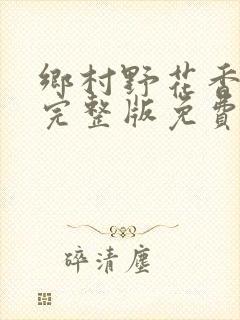 鄉村野花香
完整版免費
碎清塵